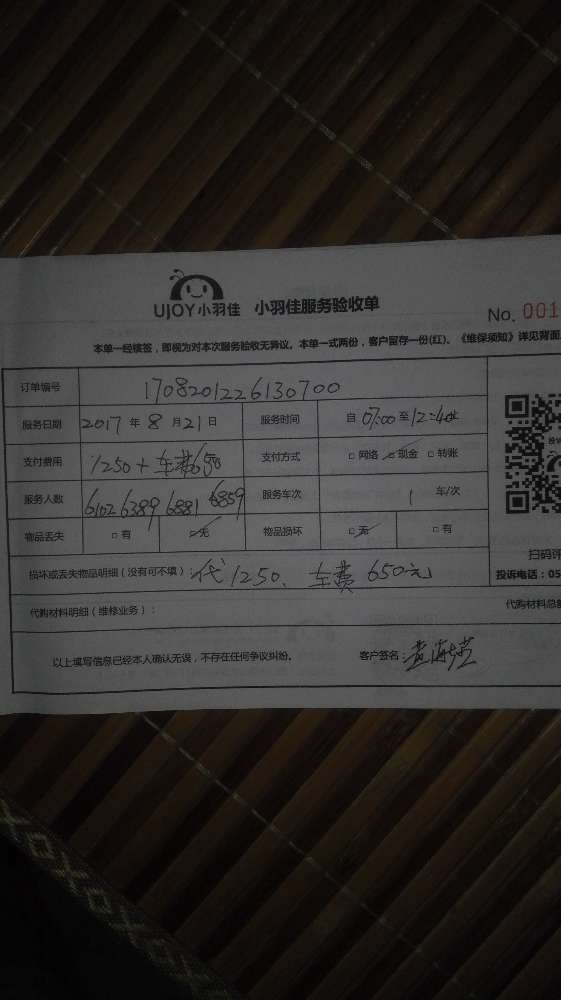 UJOY小羽佳 小羽佳服务验收单
No. 001
本单一经核签，即视为对本次服务验收无异议。本单一式两份，客户留存一份(红)。《维保须知》详见背面
订单编号 1708201226130700
服务日期 2017 年 8 月 21 日 服务时间 自 07:00 至 12:40
支付费用 1250 + 车费650 支付方式 □ 网络 □ 现金 □ 转账
服务人数 6102 6389 6881 6859 服务车次 1 车/次
物品丢失 □ 有 □ 无 物品损坏 □ 无 □ 有
扫码评
损坏或丢失物品明细（没有可不填）: 代1250、车费650元
投诉电话：05
代购材料明细（维修业务）： 代购材料总
以上填写信息已经本人确认无误，不存在任何争议纠纷。 客户签名：